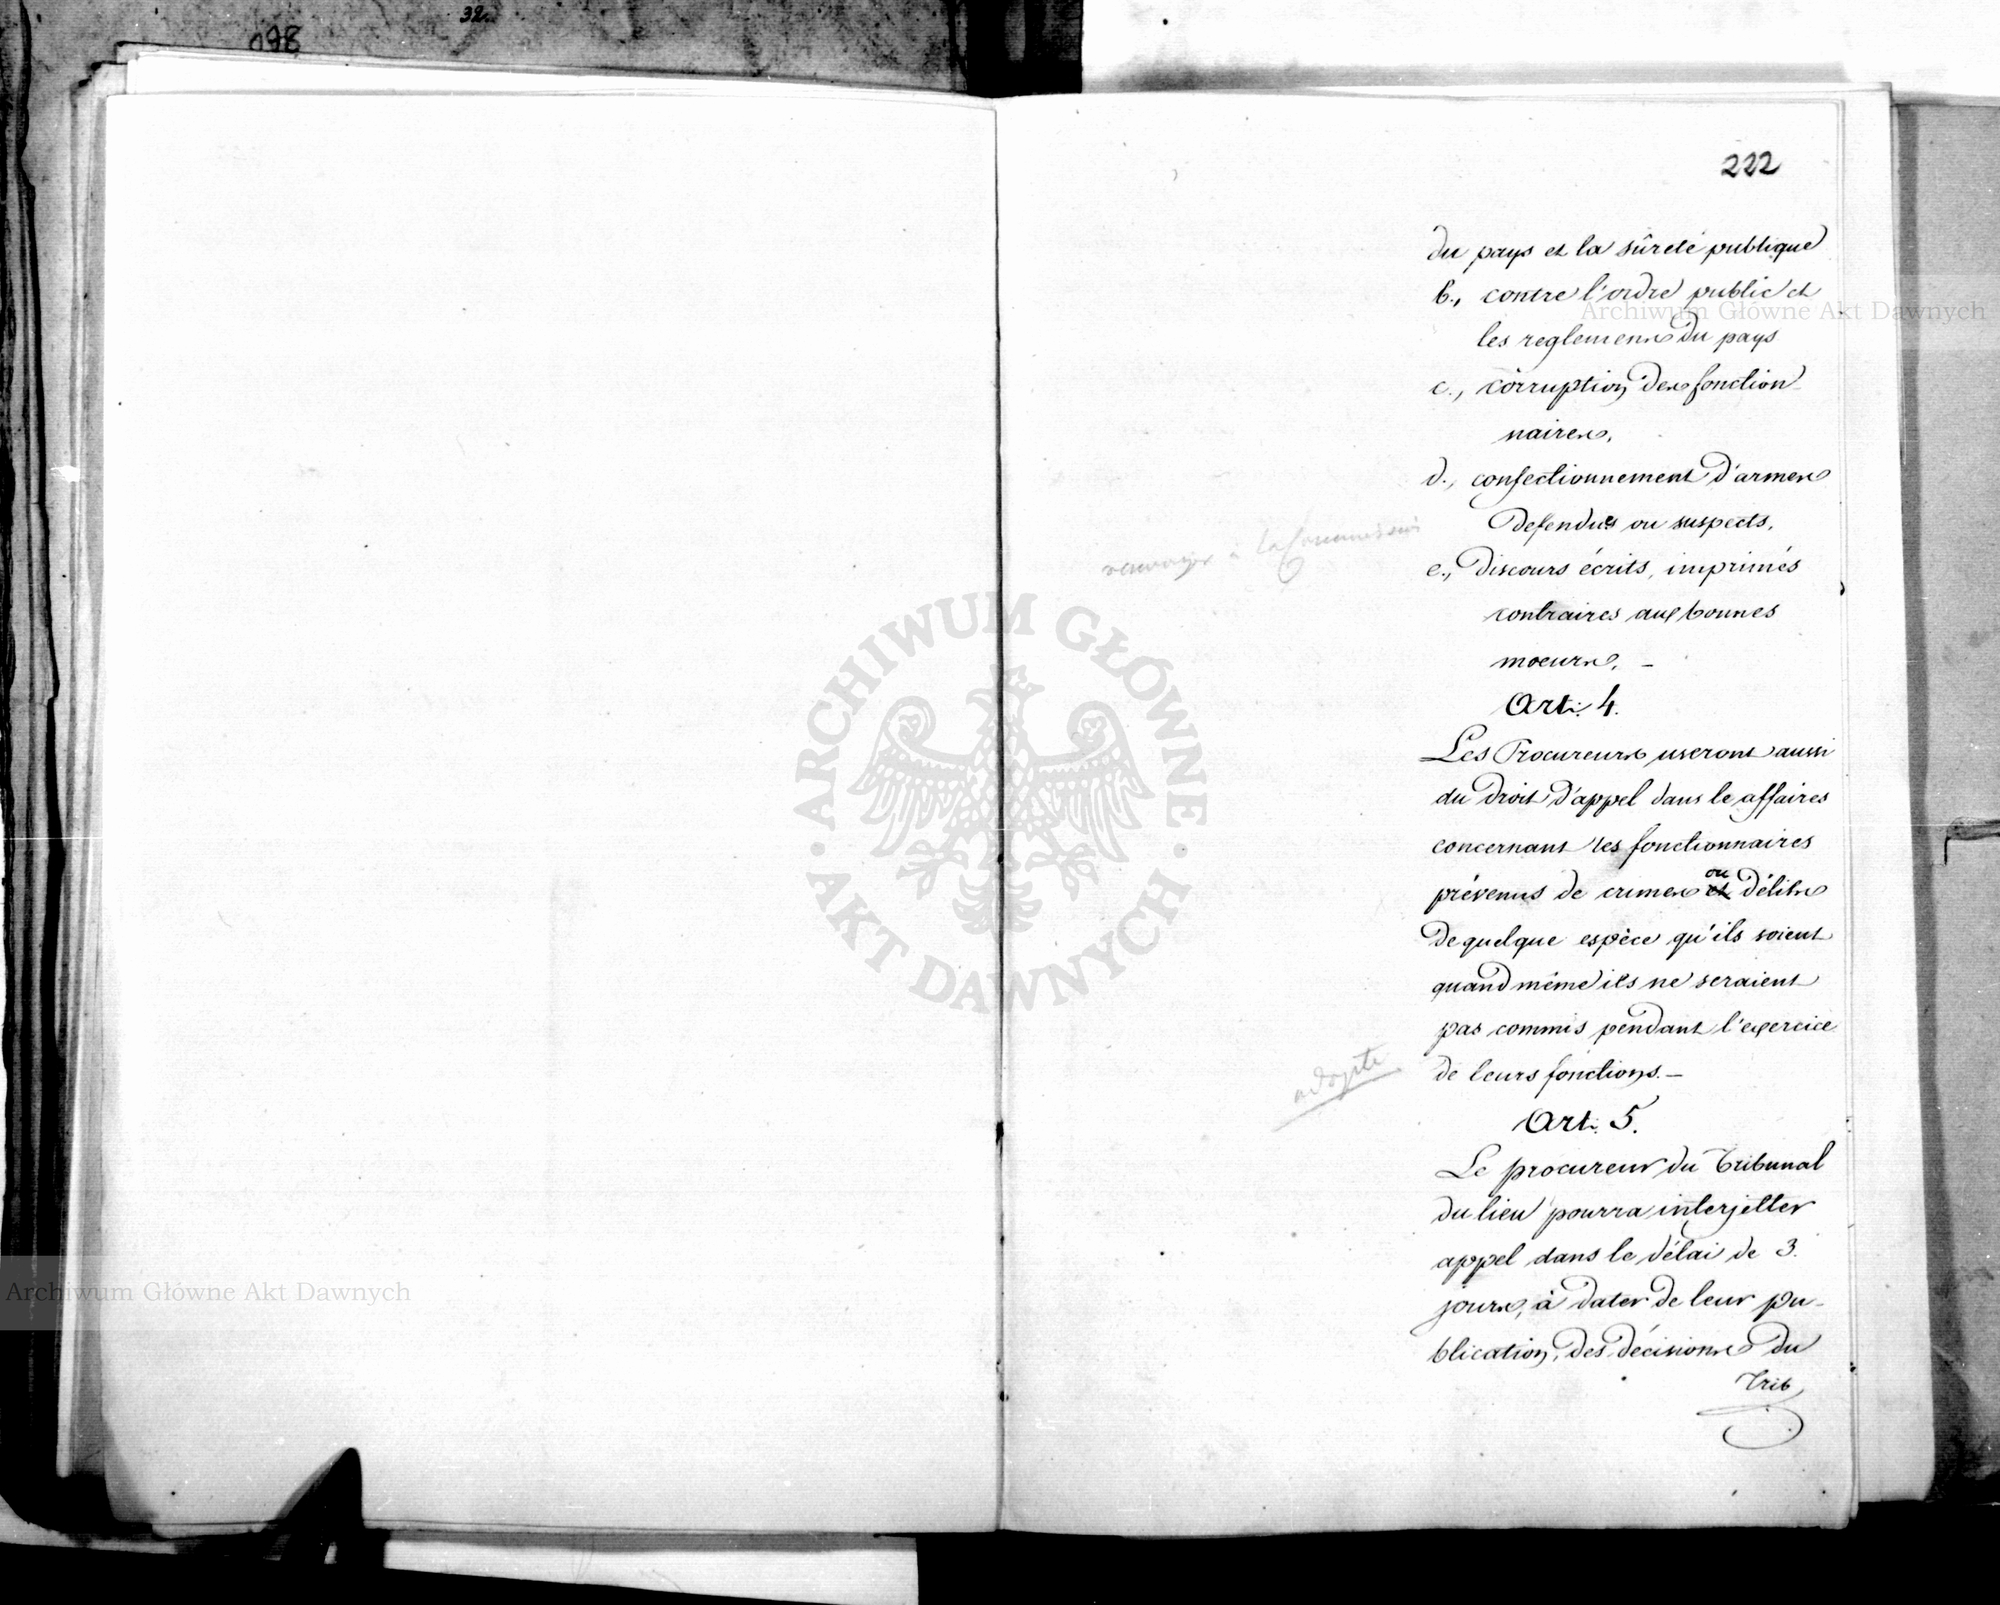 098
32
222
du pays et la sûreté publique
b., contre l'ordre public et
les reglemens du pays
c., corruption des fonction-
naires,
d., confectionnement d'armes
defendues ou suspects,
e., discours écrits, imprimés
contraires aux bonnes
moeurs. –
renvoyer à la Commission
Art: 4.
Les Procureurs useront aussi
du droit d'appel dans le affaires
concernant les fonctionnaires
prévenus de crimes et ou délits
de quelque espèce qu'ils soient
quand même ils ne seraient
pas commis pendant l'exercice
de leurs fonctions. –
adopté
Art: 5.
Le procureur du Tribunal
du lieu pourra interjetter
appel dans le délai de 3.
jours, à dater de leur pu-
blication, des décisions du
Trib
Archiwum Główne Akt Dawnych
ARCHIWUM GŁÓWNE · AKT DAWNYCH ·
Archiwum Główne Akt Dawnych